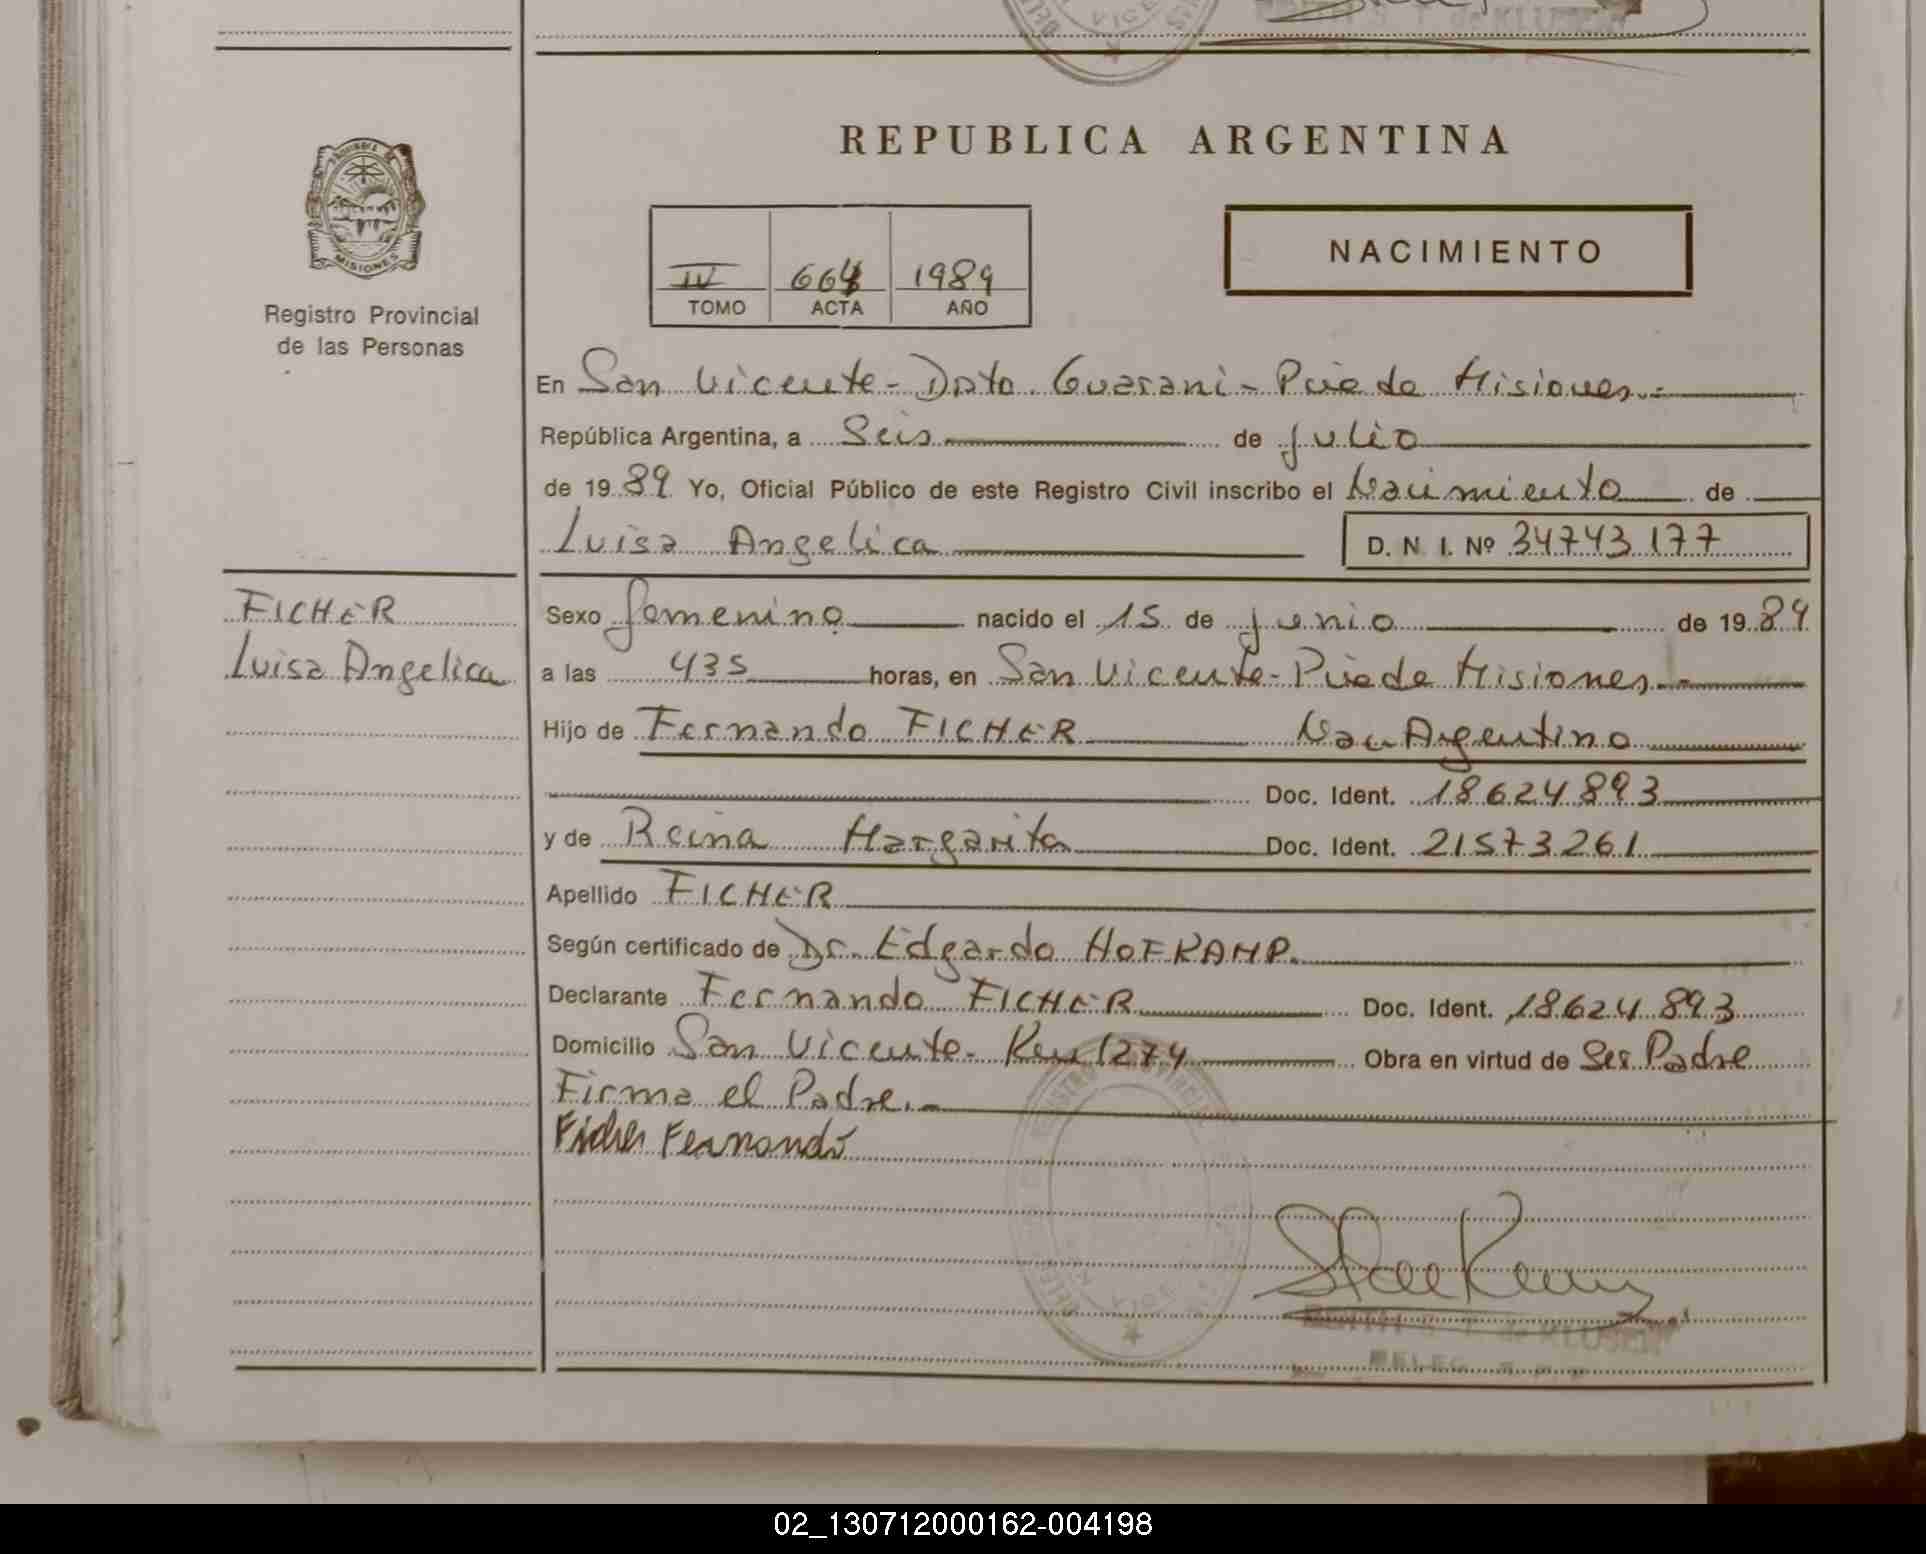 REPUBLICA ARGENTINA
MISIONES
Registro Provincial
de las Personas
IV 1989
TOMO ACTA AÑO
NACIMIENTO
En San Vicente - Dpto. Guarani - Pcia de Misiones.-
República Argentina, a Seis de julio
de 1989 Yo, Oficial Público de este Registro Civil inscribo el Nacimiento de
Luisa Angelica D. N. I. Nº 34743177
FICHER
Luisa Angelica
Sexo femenino nacido el 15 de junio de 1989
a las 435 horas, en San Vicente - Pcia de Misiones.-
Hijo de Fernando FICHER Nac Argentino
Doc. Ident. 18624893
y de Reina Margarita Doc. Ident. 21573261
Apellido FICHER
Según certificado de Dr. Edgardo HOFKAMP.
Declarante Fernando FICHER Doc. Ident. 18624893
Domicilio San Vicente - Km 1274 Obra en virtud de Ser Padre
Firma el Padre.-
Ficher Fernando
02_130712000162-004198